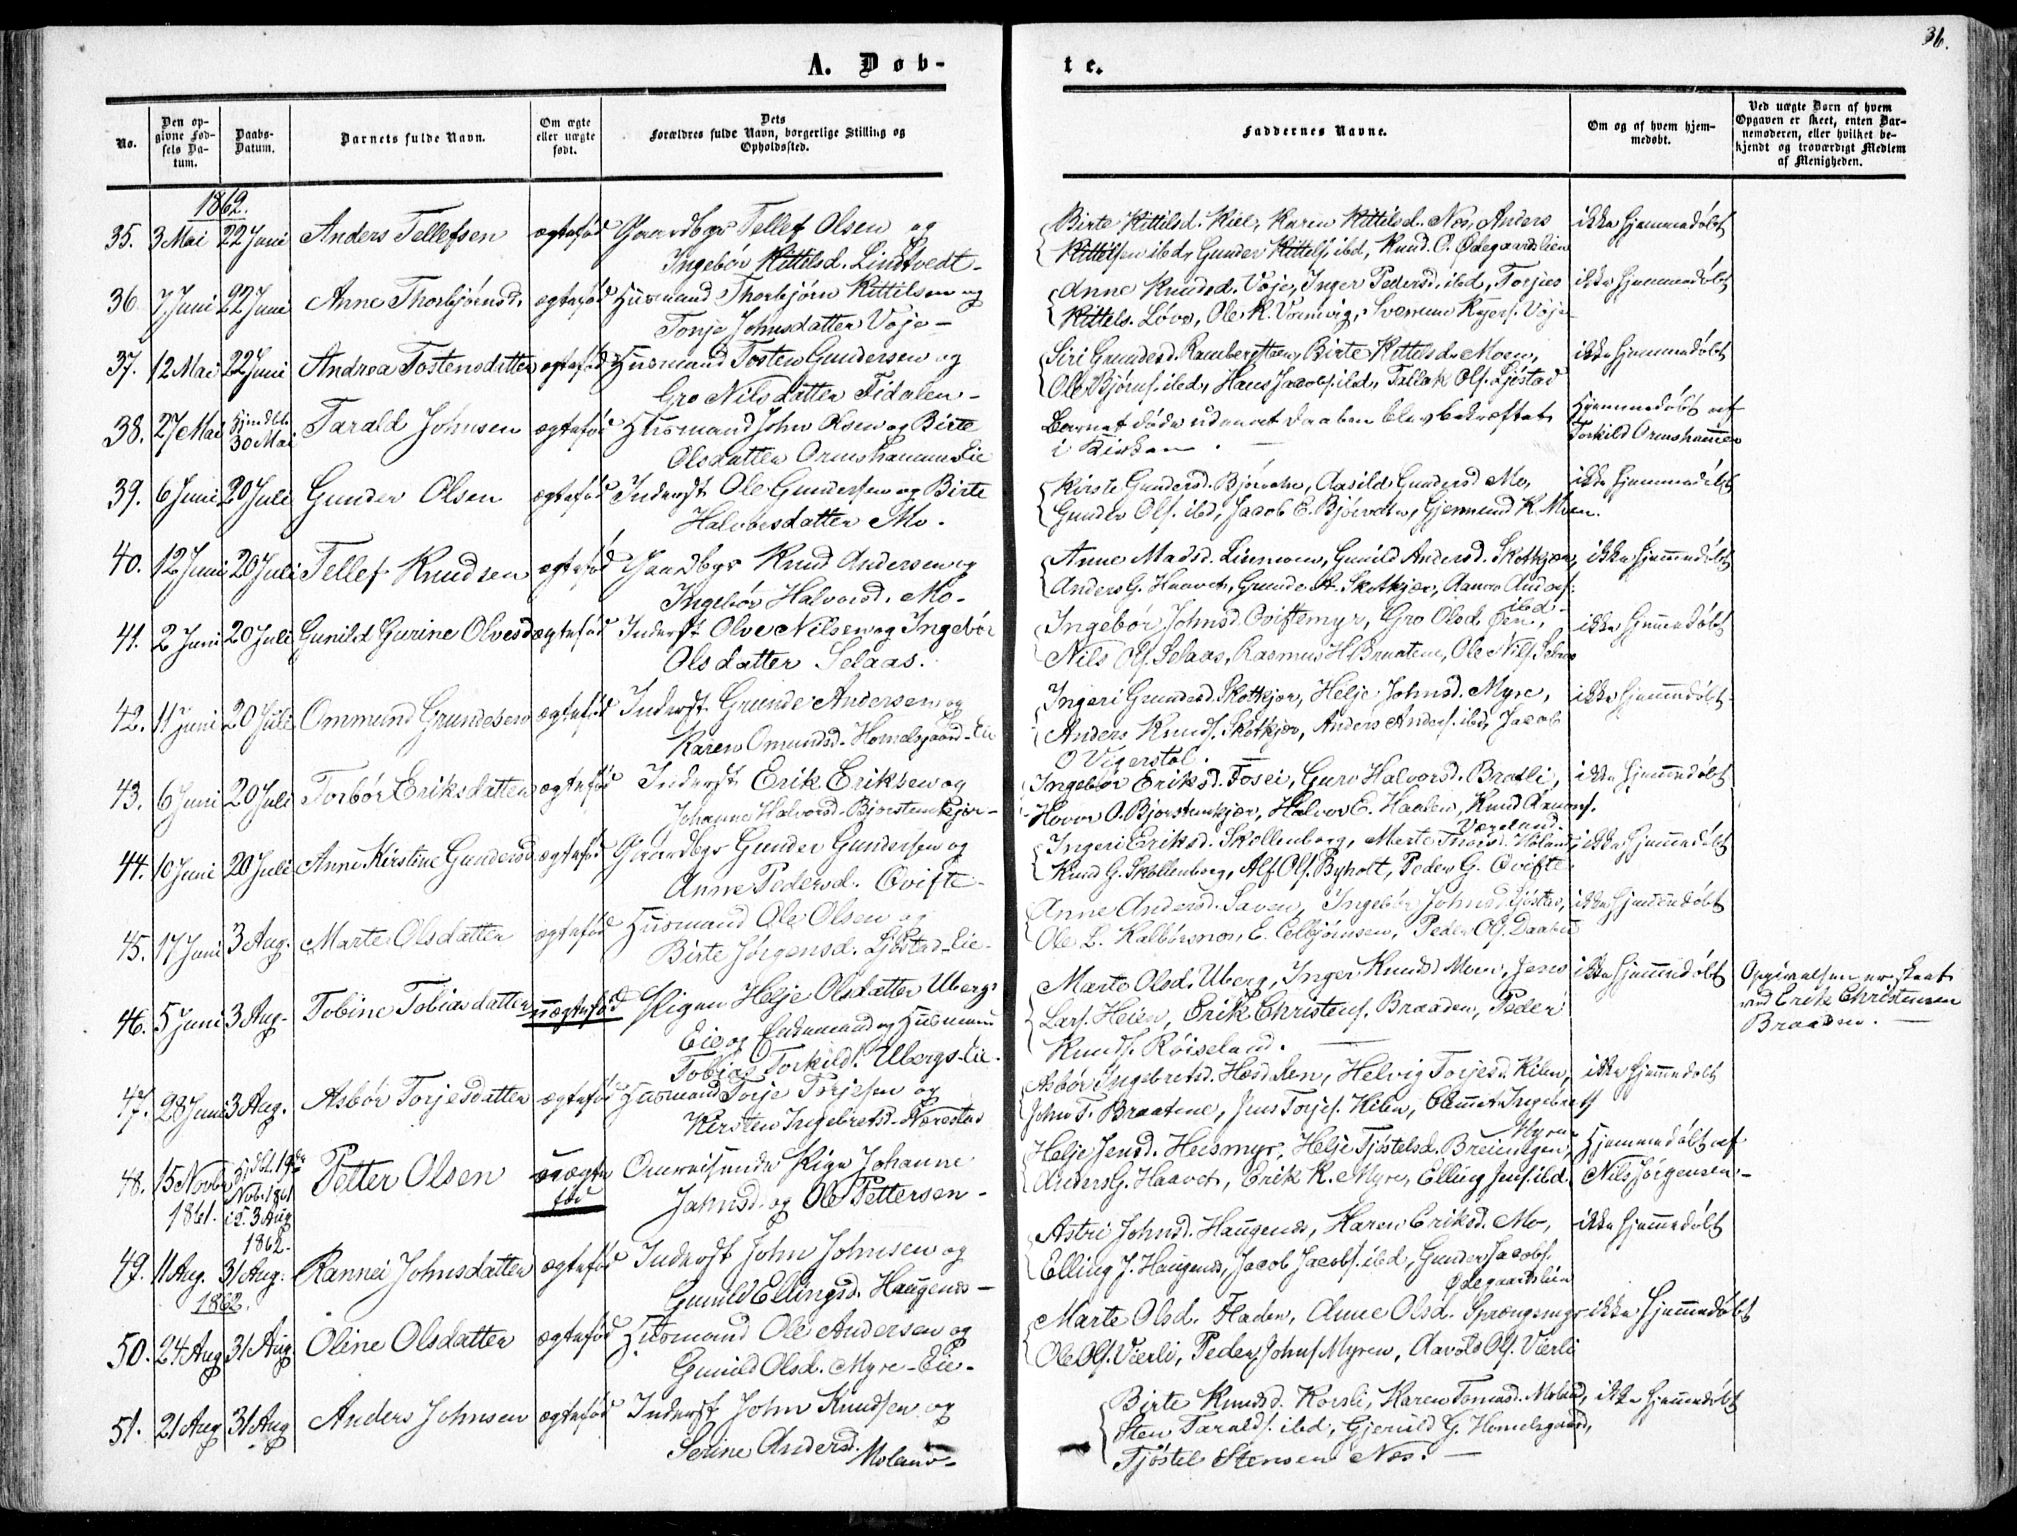 A. Døb-
te.
36.
No.
Den opgivne Fødsels Datum.
Daabs-Datum.
Barnets fulde Navn.
Om ægte eller uægte født.
Dets Forældres fulde Navn, borgerlige Stilling og Opholdssted.
Faddernes Navne.
Om og af hvem hjemmedøbt.
Ved uægte Børn af hvem Opgaven er skeet, enten Barnemoderen, eller hvilket bekjendt og troværdigt Medlem af Menigheden.
1862.
35. 3 Mai 22 Juni Anders Tellefsen ægtefød Gaardbgr Tellef Olsen og
Ingebør Kittilsd. Lindtvedt-
Birte Kittilsd. Kiil, Karen Kittilsd. Næs, Anders
Kittilsen ibd, Gunder Kittils. ibd, Knud O. Ødegaardslien
ikke hjemmedøbt
36. 7 Juni 22 Juni Anne Thorbjørnsd. ægtefød Husmand Thorbjørn Kittilsen og
Tonje Johnsdatter Voje-
Anne Knudsd. Voje, Inger Pedersd. ibd, Torjus
Kittels. Løvo, Ole K.
ikke hjemmedøbt
37. 12 Mai 22 Juni Andrea Tostensdatter ægtefød Husmand Tosten Gundersen og
Gro Nilsdatter Fidalen-
Siri Gundersd. Birte Kittelsd. Moen,
Ole Bjørns. ibd, Hans Jacobs. ibd, Tallak Ols. Ljøstad
ikke hjemmedøbt
38. 27 Mai Hjmdbt 30 Mai Tarald Johnsen ægtefød Husmand John Olsen og Birte
Olsdatter Ormshammer Eie
Barnet døde uden at Daaben blev bekræftet
i Kirken.
Hjemmedøbt af
Torkild Ormshammer
39. 6 Juni 20 Juli Gunder Olsen ægtefød Inderst Ole Gundersen og Birte
Halvorsdatter Mo.
Kirste Gundersd. Aasild Gundersd Mo,
Gunder Ols. ibd, Jacob E. Gjermund K. Moen.
ikke hjemmedøbt
40. 12 Juni 20 Juli Tellef Knudsen ægtefød Gaardbgr Knud Andersen og
Ingebør Halvorsd. Mo-
Anne Madsd. Linmoen, Gunild Andersd. Skotkjær,
Anders G. Haavet, Grunde A. Skotkjær, Aanon Anders.
ibd-
ikke hjemmedøbt
41. 2 Juni 20 Juli Gunild Gurine Olvesd ægtefød Inderst Olve Nilsen og Ingebør
Olsdatter Selaas.
Ingebør Johnsd. Oviftemyr, Gro Olsd. Øen,
Nils Ols. Selaas, Rasmus H. Braatene, Ole Nils. Selaas
ikke hjemmedøbt
42. 11 Juni 20 Juli Ommund Grundesen ægtefød Inderst Grunde Andersen og
Karen Omundsd. Homelsgaard-Eie
Ingeri Grundesd. Skotkjær, Helje Johnsd. Myre,
Anders Knuds. Skotkjær, Anders Anders. ibd, Jacob
O Vigerstøl.
ikke hjemmedøbt
43. 6 Juni 20 Juli Torbør Eriksdatter ægtefød Inderst Erik Eriksen og
Johanne Halvorsd. Bjorstenkjær-
Ingebør Eriksd. Fosei, Guro Halvorsd. Bratli,
Hovor O. Bjorstenkjær, Halvor E. Haalen, Knud Aanons.
Væreland-
ikke hjemmedøbt
44. 10 Juni 20 Juli Anne Kirstine Gundersd ægtefød Gaardbgr Gunder Gundersen og
Anne Pedersd. Ovifte-
Ingeri Eriksd. Skollenborg, Marte Moland,
Knud G. Skollenborg, Alf Ols. Byholt, Peder G. Ovifte-
ikke hjemmedøbt
45. 17 Juni 3 Aug. Marte Olsdatter ægtefød Husmand Ole Olsen og
Birte Jørgensd. Ljøstad-Eie-
Anne Andersd. Saven, Ingebør Johnsd. Ljøstad,
Ole L. Kalbørsnes, E. Peder Ols.
ikke hjemmedøbt
46. 5 Juni 3 Aug- Tobine Tobiasdatter uægtefød Pigen Helje Olsdatter Ubergs
Eie og Enkemand og Husmand
Tobias Torkilds. Ubergs-Eie-
Marte Olsd. Uberg, Inger Knudsd Moen, Jens
Lars. Heien, Erik Christens. Braaden, Peder
Knuds. Røiseland.
ikke hjemmedøbt
Opgivelsen er skeet
ved Erik Christensen
Braaden.
47. 28 Juni 3 Aug. Asbør Torjesdatter ægtefød Husmand Torje Torjesen og
Kirsten Ingebretsd. Nærestad
Asbør Ingebretsd. Hæsdalen, Helvig Torjesd. Kilen,
John T. Braatene, Jens Torjes. Kilen, Clemet Ingebrets
Myren
ikke hjemmedøbt
48. 15 Novbr 1861. Hjdbt 19de Nov. 1861 i K. 3 Aug 1862. Petter Olsen uægte
fød
Omreisende Pige Johanne
Jahnsd. og Ole Pettersen-
Helje Jensd. Heesmyr, Helje Tjøstelsd. Breiungen,
Anders G. Haavet, Erik K. Myre, Elling Jens. ibd.
Hjemmedøbt af
Nils Jørgensen-
49. 11 Aug. 31 Aug. Rannei Johnsdatter ægtefød Inderst John Johnsen og
Gunild Ellingsd. Haugenes-
Astri Johnsd. Haugenes, Karen Eriksd. Mo,
Elling J. Haugenes, Jacob Jacobs. ibd, Gunder Jacobs.
Ødegaardslien
ikke hjemmedøbt
1862.
50. 24 Aug 31 Aug Oline Olsdatter ægtefød Husmand Ole Andersen og
Gunild Olsd. Myre-Eie-
Marte Olsd. Fladen, Anne Olsd. Sprængsmyr
Ole Ols. Vierli, Peder Johns Myren, Aavold Ols. Vierli
ikke hjemmedøbt
51. 21 Aug 31 Aug Anders Johnsen ægtefød Inderst John Knudsen og
Serine Andersd. Moland-
Birte Knudsd. Korsli, Karen Tomasd. Moland,
Sten Taralds. ibd, Gjeruld G. Homelsgaard,
Tjøstel Stensen Næs.-
ikke hjemmedøbt